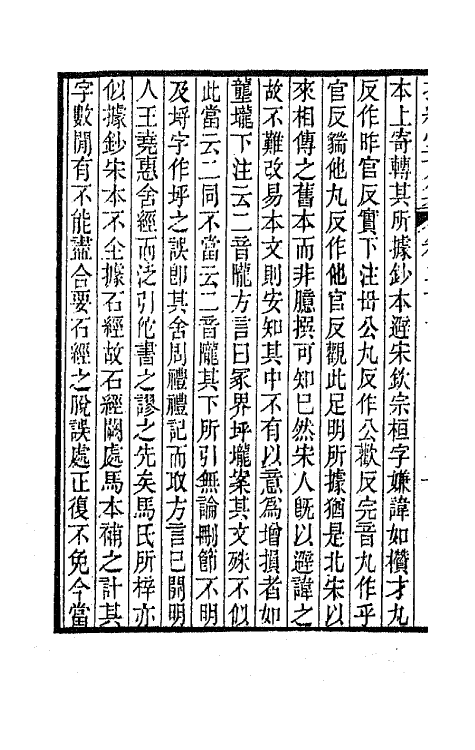 本上寄轉其所據鈔本避宋欽宗桓字嫌諱如欑才九
反作昨官反實下注毌公丸反作公歡反完音丸作乎
官反貒他丸反作他官反觀此足明所據猶是北宋以
來相傳之舊本而非臆撰可知巳然宋人旣以避諱之
故不難改易本文則安知其中不有以意爲增損者如
壟壠下注云二音隴方言曰冢界埒壠案其文殊不似
此當云二同不當云二音隴其下所引無論刪節不明
及埒字作埓之誤卽其舍周禮禮記而取方言已開明
人王堯惠舍經而泛引佗書之謬之先矣馬氏所梓亦
似據鈔宋本不全據石經故石經闕處馬本補之計其
字數閒有不能盡合要石經之脫誤處正復不免今當